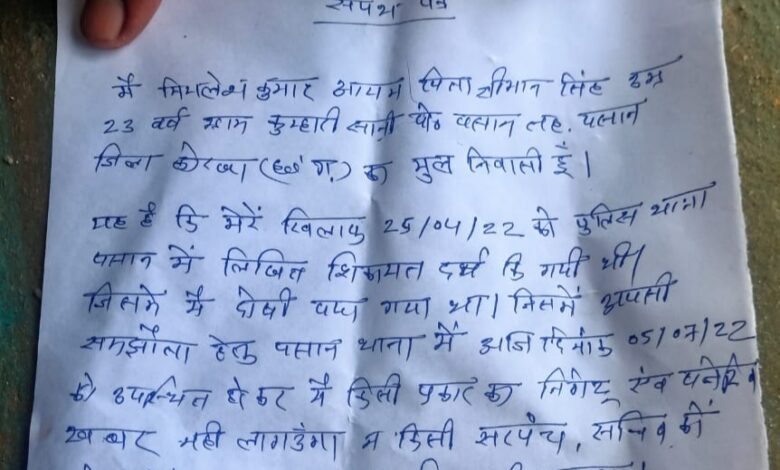 सपथ पत्र
मैं मिथलेश कुमार आयाम पिता श्रीमान सिंह उम्र
23 वर्ष ग्राम कुम्हारी सानी पो० पसान तह. पसान
जिला कोरबा (छ० ग०) का मुल निवासी हूँ।
यह है कि मेरें खिलाफ 25/04/22 को पुलिस थाना
पसान में लिखित शिकायत दर्ज कि गयी थी।
जिसमें मैं दोषी पाया गया था। जिसमें आपसी
समझौता हेतु पसान थाना में आज दिनांक 05/07/22
को उपस्थित होकर मैं किसी प्रकार का निगेटू एंव
खबार नही लगाउंगा न किसी सरपंच, सचिव को